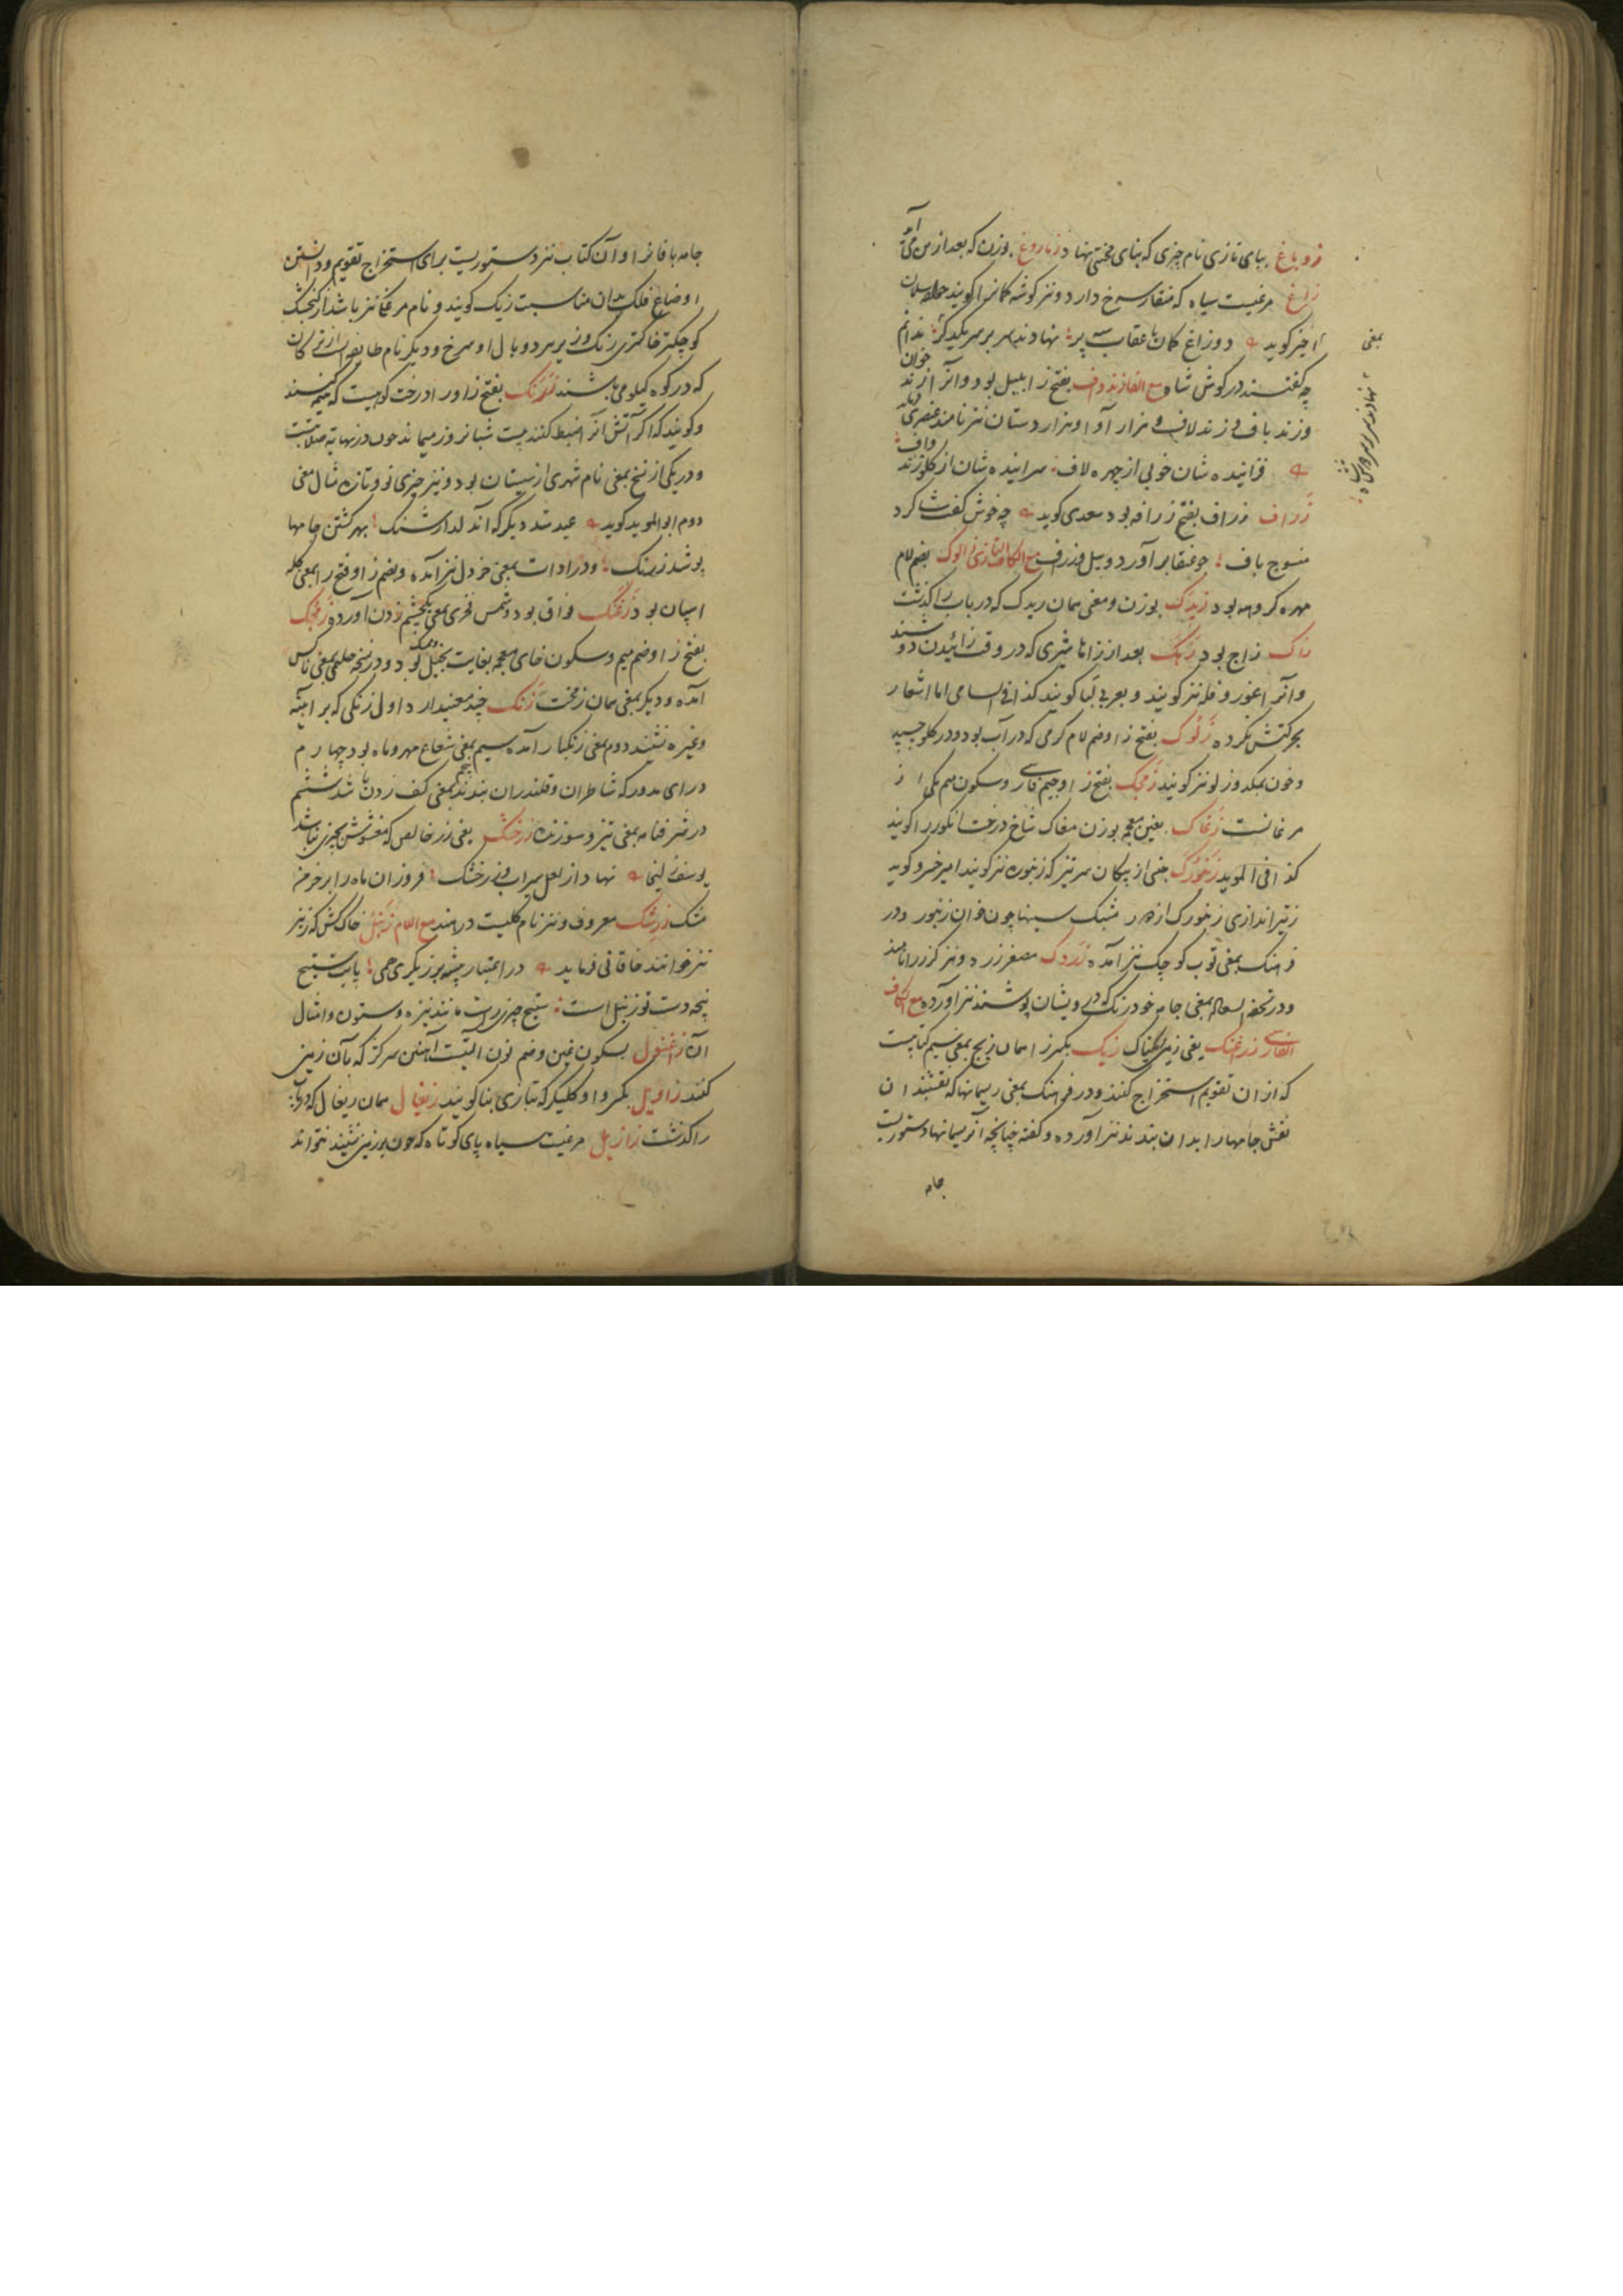 زوباغ ببای تازی نام چیزی که بنای مخنثی نهاد زناروغ بوزن که بعد ازین می آید
زاغ مرغیست سیاه که منقار سرخ دارد و نیز کوشه کمانرا کویند سلمان
کوید دو زاغ کمان با عقاب سه پر نهادند سر بر سر یکدکر ندانم
چه کفتند در کوش شاه مع الفا زندواف بفتح زا بلبل بود و آنرا زند خوان
و زندباف و زندلاف و هزار آوا و هزار دستان نیز نامند عنصری فرماید
فزاینده شان خوبی از چهره لاف سراینده شان از کلو زندواف
زراف زراف بفتح زرافه بود سعدی کوید چه خوش کفت شاکرد
منسوج باف چو عنقا برآورد و پیل و زراف مع الکاف التازی زالوک بضم لام
مهره کروهه بود زیدک بوزن و معنی همان ریدک که در باب را کذشت
زاک زاج بود زهک بعد از زا ها شیری که در وقت زائیدن دوشند
و آنرا اغوز و فله نیز کویند و بعربی لبا کویند کذا فی السامی اما اشعار
بحرکتش نکرده زلوک بفتح زا و ضم لام کرمی که در آب بود و در کلو چسپد
و خون بمکد و زلو نیز کویند زمجک بفتح زا و جیم فارسی و سکون میم یکی از
مرغانست زغاک بغین معجمه بوزن مغاک شاخ درخت انکور را کویند
کذا فی الموید زنبورک جنسی از پیکان سرتیز که زنبوره نیز کویند امیر خسرو کوید
ز تیراندازی زنبورک از هر مشبک سینها چون خوان زنبور و در
فرهنک بمعنی توپ کوچک نیز آمده زردک مصغر زرد و نیز کزر را نامند
و در تحفه السعاده بمعنی جامه خودرنک که درویشان پوشند نیز آورده مع الکاف
الفارسی زراغنک یعنی زمین ریکناک زیک بکسر زا همان زیج بمعنی سیم کتابیست
که از ان تقویم استخراج کنند و در فرهنک بمعنی ریسمانها که نقشبندان
نقش جامها را بدان بندند نیز آورده و کفته چنانچه آن ریسمانها دستوریست
جامه
بمعنی
نهادند سر بر سر دوش شاه
جامه بافانرا و آن کتاب نیز دستوریست برای استخراج تقویم و دانستن
اوضاع فلک بدان مناسبت زیک کویند و نام مرغکی نیز باشد از کنجشک
کوچکتر خاکستری رنک و زیر پر هر دو بال او سرخ و دیکر نام طایفه است از ترکان
که در کوه کیلویه می باشند زرنک بفتح زا و را درختی کوهیست که هیمه کنند
و کویند که اکر آتش آنرا ضبط کنند بیست شبانروز میماند چون در نهایة صلابتست
و در یکی از نسخ بمعنی نام شهری از سیستان بود و نیز چیزی نو و تازه مثال معنی
دوم ابوالموید کوید عید شد دیکر که آن دلدار شنک بهر کشتن جامها
پوشد زرنک و در ادات بمعنی خردل نیز آمده و بضم زا و فتح را بمعنی کله
اسپان بود زغنک فواق بود و شمس فخری بمعنی یکچشم زدن آورده زمخک
بفتح زا و ضم میم و سکون خای معجمه بغایت بخیل بود و در نسخه حلیمی بمعنی ناکس
آمده و دیکر بمعنی همان زمخت زنک چند معنی دارد اول زنکی که بر آیینه
و غیره نشیند دوم بمعنی زنکبار آمده سیم بمعنی شعاع مهر و ماه بود چهارم
درای مدور که شاطران و قلندران بندند پنجم بمعنی کف زدن باشد ششم
در شرفنامه بمعنی تیز و سوزنده زرخشک یعنی زر خالص که مغشوش بچیزی نباشد
یوسف زلیخا نهاد از لعل سیراب و ز زر خشک فروزان ماه را بر خرمن
مشک زرشک معروف و نیز نام کلیست در هند مع اللام زنبل خاک کش که زنبر
نیز خوانند خاقانی فرماید در اعتبار چشمه بزریکری همی پایت شبیح
پنجه دست تو زنبل است شبیح چیز راست مانند نیزه و ستون و امثال
آن زاغنول بسکون غین و ضم نون آلتیست آهنین سرکژ که بآن زمین
کنند زاویل بکسر واو کلیکر که بتازی بنا کویند زیغال همان ریغال که در باب
را کذشت زازیل مرغیست سیاه پای کوتاه که چون بر زمین نشیند نتواند